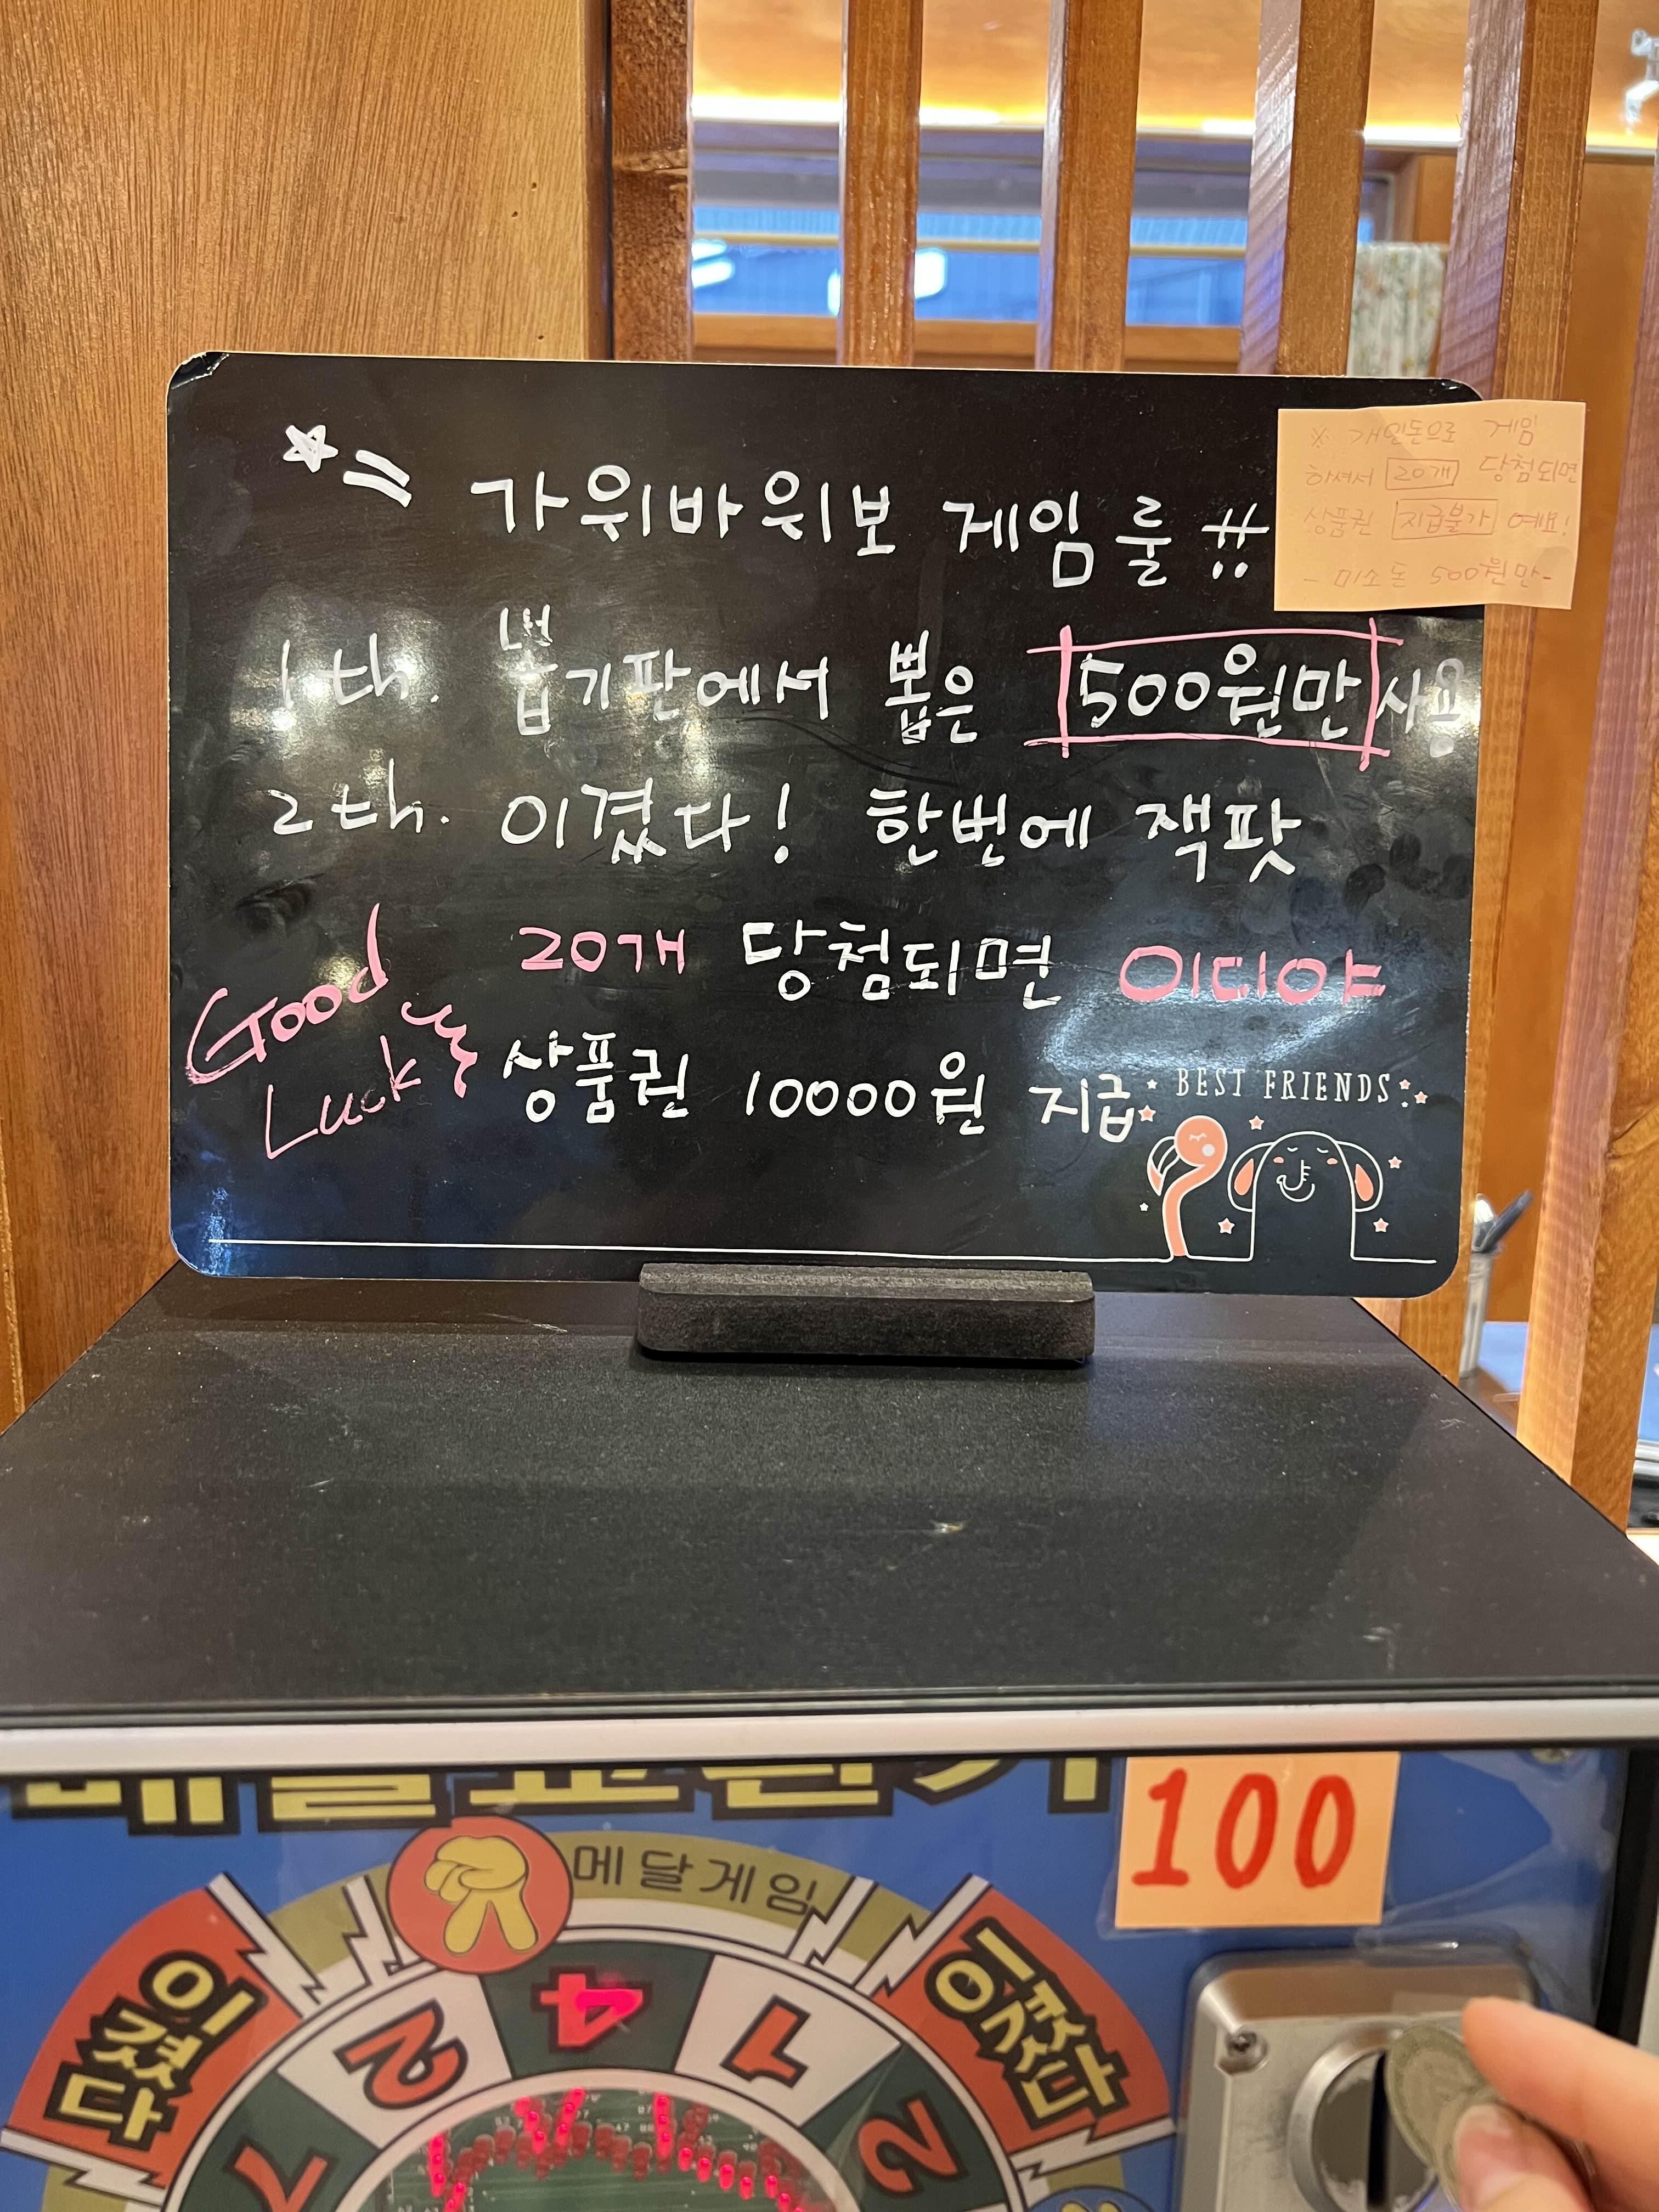 가위바위보 게임 룰 !!
※ 개인돈으로 게임
하셔서 20개 당첨되면
상품권 지급불가 예요!
- 미소돈 500원만 -
1th. 뽑기판에서 뽑은 500원만 사용
2th. 이겼다! 한번에 잭팟
20개 당첨되면 이디야
상품권 10000원 지급
Good
Luck
BEST FRIENDS
100
메달게임
이겼다
이겼다
7
2
4
1
2